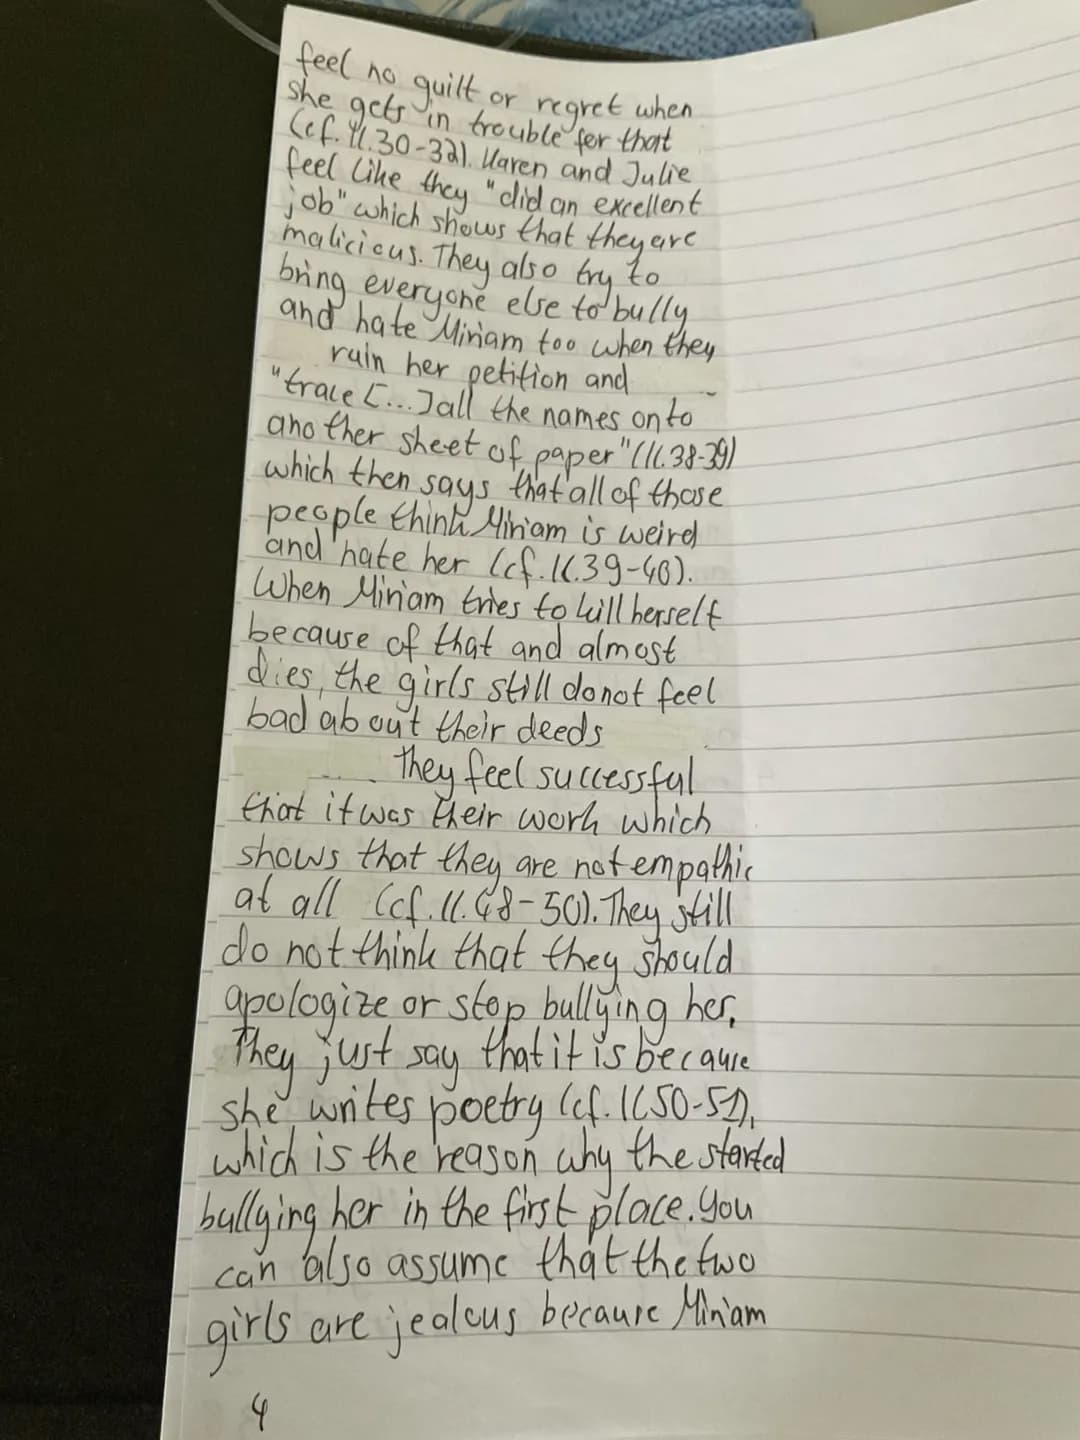 feel no guilt or regret when
she gets in trouble for that
(cf. ll.30-32). Karen and Julie
feel like they "did an excellent
job" which shows that they are
malicious. They also try to
bring everyone else to bully
and hate Miriam too when they
ruin her petition and
"trace [...] all the names onto
another sheet of paper" (ll.38-39)
which then says that all of those
people think Miriam is weird
and hate her (cf. ll.39-40).
When Miriam tries to kill herself
because of that and almost
dies, the girls still do not feel
bad about their deeds
They feel successful
that it was their work which
shows that they are not empathic
at all (cf. ll.48-50). They still
do not think that they should
apologize or stop bullying her.
They just say that it is because
she writes poetry (cf. ll 50-51),
which is the reason why the started
bullying her in the first place. You
can also assume that the two
girls are jealous because Miriam
4